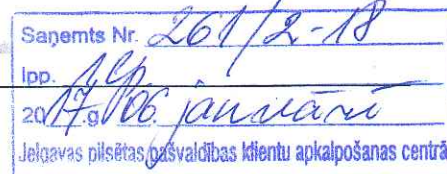 Saņemts Nr. 261/2-18
Ipp. 1 lp
2017.g 06. janvārī
Jelgavas pilsētas pašvaldības klientu apkalpošanas centrā